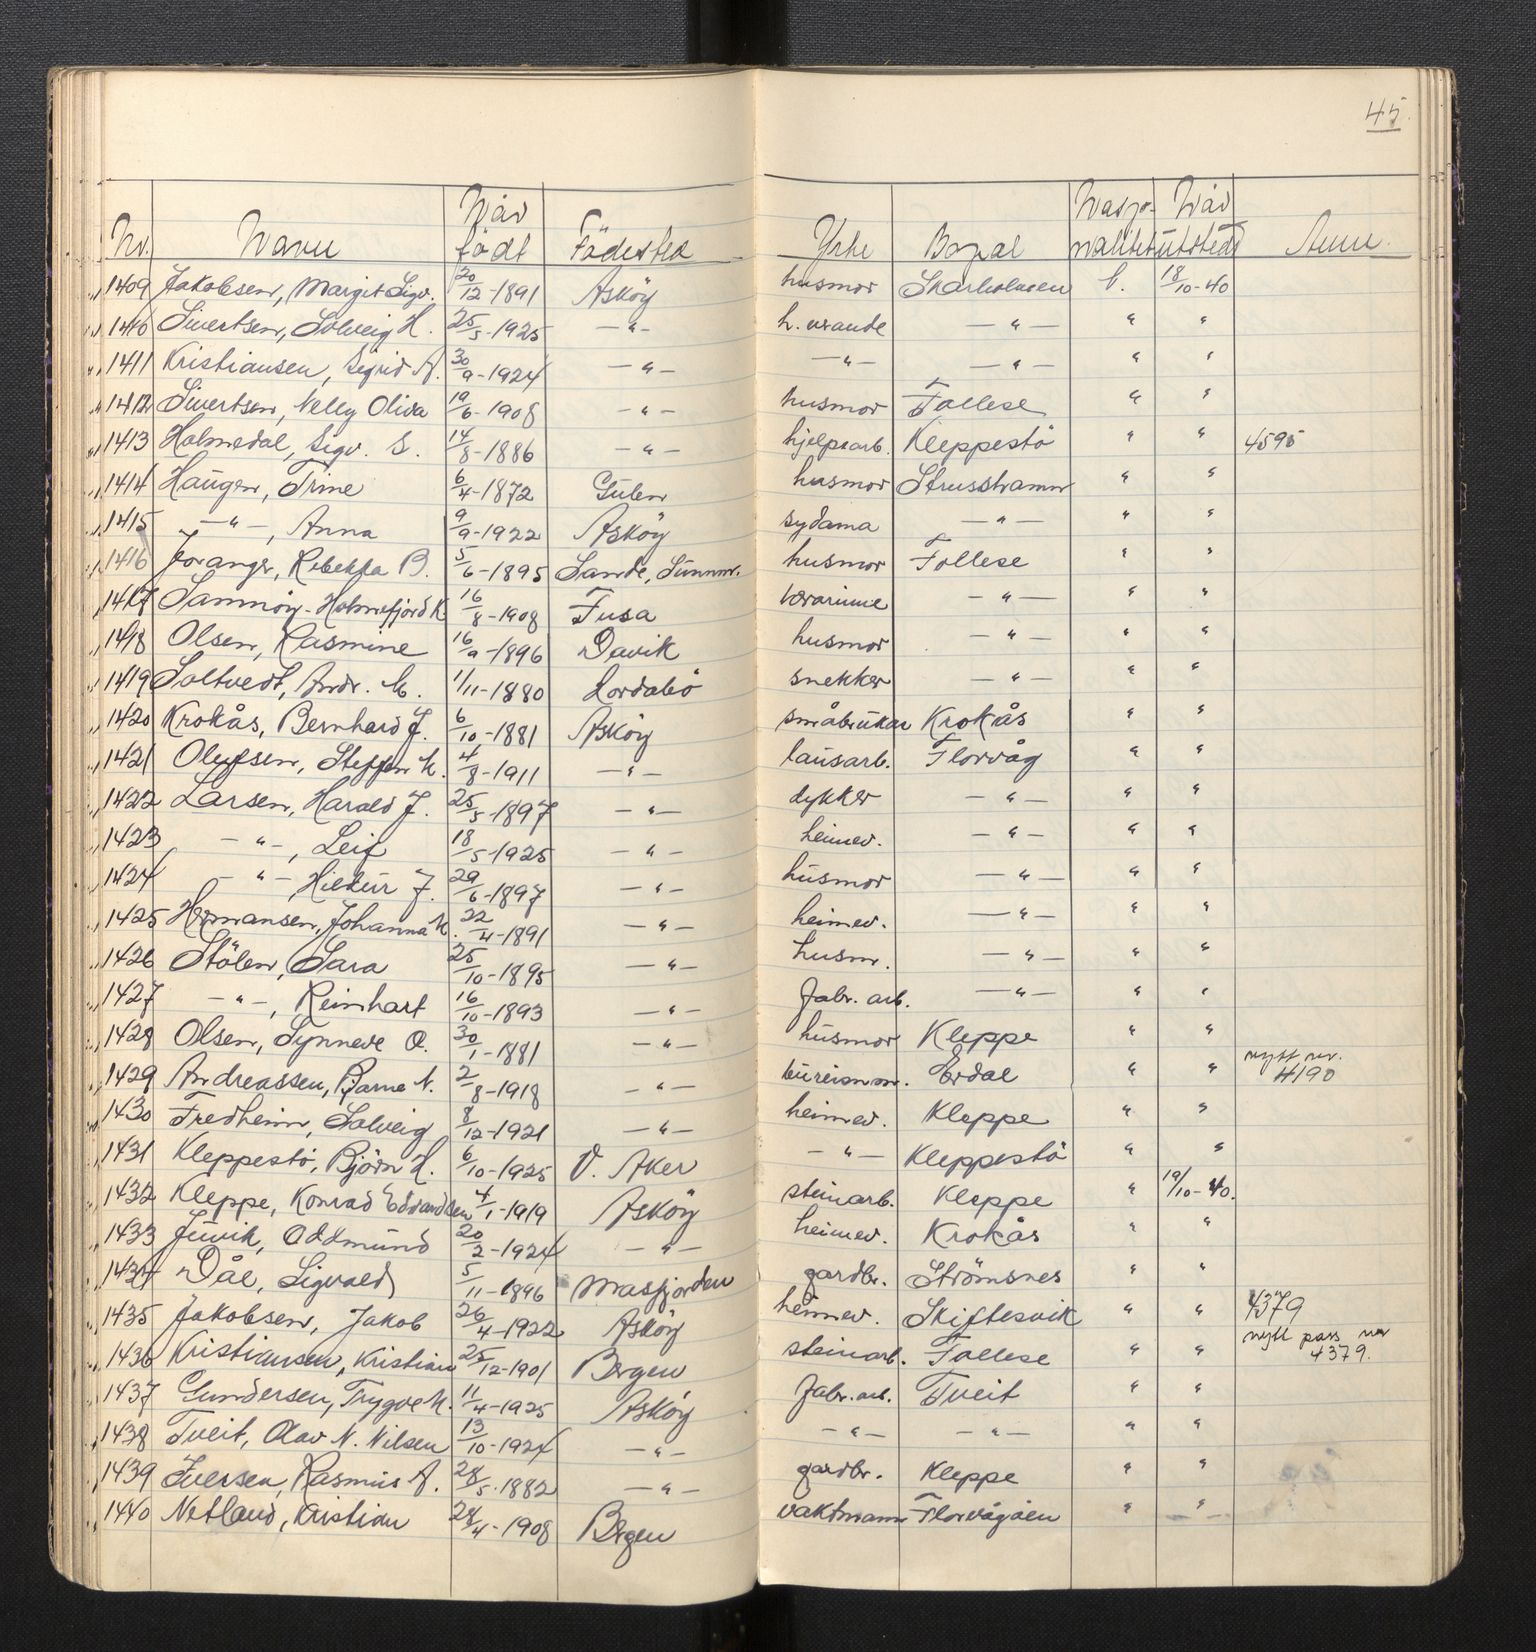 45.
Nr. Navn Når födt Födested Yrke Bopæl Nasjonalitet Når utstedt Anm.
1409 Jakobsen, Margit Sigv. 20/12-1891 Asköy husmor Skarholmen N. 18/10-40
1410 Sivertsen, Solveig H. 25/5-1925 —"— h. verande —"— " "
1411 Kristiansen, Sigrid A. 30/9-1924 —"— —"— —"— " "
1412 Sivertsen, Nelly Oliva 19/6-1908 —"— husmor Follese " "
1413 Holmedal, Sigv. S. 14/8-1886 —"— hjelpearb. Kleppestö " " 4595
1414 Haugen, Trine 6/4-1872 Gulen husmor Strusshamn " "
1415 —"—, Anna 9/9-1922 Asköy sydama —"— " "
1416 Joranger, Rebekka B. 5/6-1895 Sande, Sunnm. husmor Follese " "
1417 Samnöy-Holmefjord K 16/8-1908 Fusa lærarinne —"— " "
1418 Olsen, Rasmine 16/9-1896 Davik husmor —"— " "
1419 Soltvedt, Andr. M. 1/11-1880 Hordabö snekker —"— " "
1420 Krokås, Bernhard J. 6/10-1881 Asköy småbruker Krokås " "
1421 Olufsen, Steffen M. 4/8-1911 —"— lausarb. Florvåg " "
1422 Larsen, Harald J. 25/5-1897 —"— dykker —"— " "
1423 —"—, Leif 18/5-1925 —"— heimev. —"— " "
1424 —"— Hildur J. 29/6-1897 —"— husmor —"— " "
1425 Hermansen, Johanna M. 22/4-1891 —"— heimev. —"— " "
1426 Stölen, Sara 25/10-1895 —"— husm. —"— " "
1427 —"—, Reinhart 16/10-1893 —"— fabr. arb. —"— " "
1428 Olsen, Synneve O. 30/1-1881 —"— husmor Kleppe " "
1429 Andreassen, Bjarne N. 2/8-1918 —"— bureismm. Erdal " " nytt nr. 4190
1430 Fredheim, Solveig 8/12-1921 —"— heimev. Kleppe " "
1431 Kleppestö, Björn H. 6/10-1925 V. Aker —"— Kleppestö " "
1432 Kleppe, Konrad Edvardsen 4/1-1919 Asköy steinarb. Kleppe " 19/10-40.
1433 Juvik, Oddmund 20/2-1924 —"— heimev. Krokås " "
1434 Dåe, Sigvald 5/11-1896 Masfjorden gardbr. Strömsnes " "
1435 Jakobsen, Jakob 26/4-1922 Asköy heimev. Skiftesvik " " 4379
1436 Kristiansen, Kristian 25/12-1901 Bergen steinarb. Follese " " nytt pass nr 4379.
1437 Gundersen, Trygve M. 11/4-1925 Asköy fabr. arb. Tveit " "
1438 Tveit, Olav N. Nilsen 13/10-1924 —"— —"— —"— " "
1439 Iversen, Rasmus A. 28/5-1882 —"— gardbr. Kleppe " "
1440 Netland, Kristian 24/4-1908 Bergen vaktmann Florvågöen " "